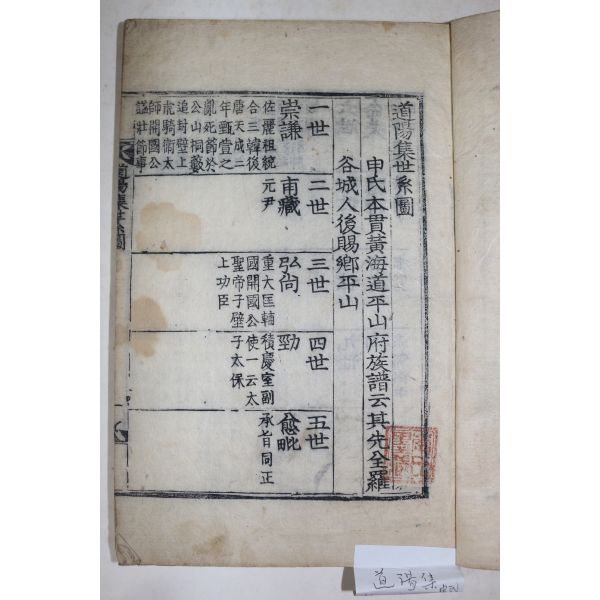 道陽集世系圖
申氏本貫黃海道平山府族譜云其先全羅
谷城人後賜鄕平山
一世
崇謙
佐麗祖統
合三韓後
唐天成二
年甄萱之
亂死節於
公山桐藪
追封壁上
虎騎衛太
師開國公
謚壯節事
二世
甫藏
元尹
三世
弘尙
重大匡輔
國開國公
聖帝子壁
上功臣
四世
勁
積慶室副
使一云太
子太保
五世
愈毗
承旨同正
道陽集世系圖
道陽集